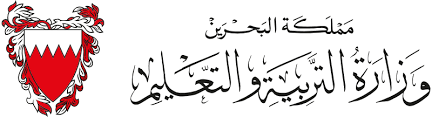 مملكة البحرين
وزارة التربية والتعليم